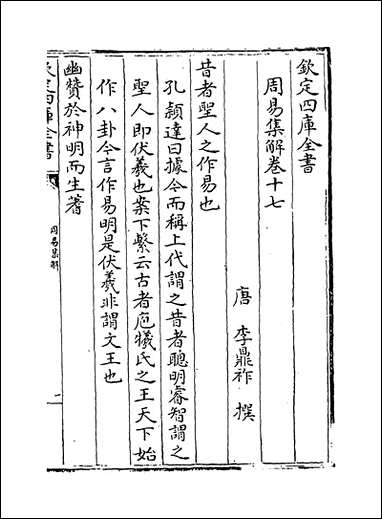 欽定四庫全書
周易集解卷十七
唐 李鼎祚 撰
昔者聖人之作易也
孔穎達曰據今而稱上代謂之昔者聰明睿智謂之
聖人即伏羲也案下繫云古者庖犧氏之王天下始
作八卦今言作易明是伏羲非謂文王也
幽贊於神明而生蓍
欽定四庫全書
周易集解
一